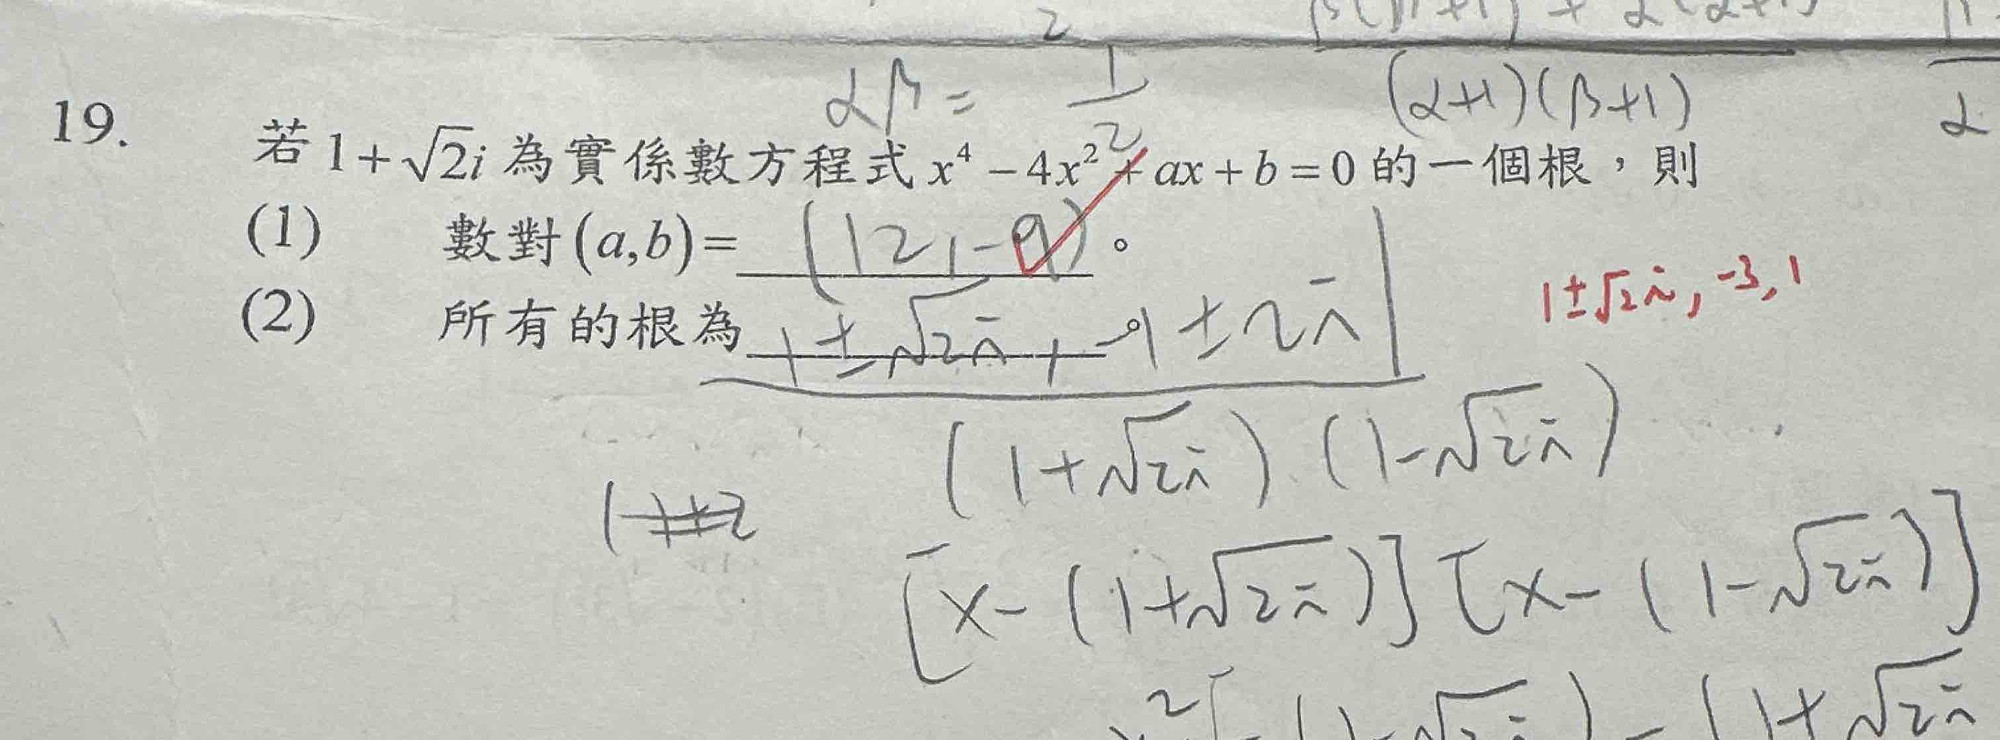 2 β(β+1) + α(α+1)
αβ = 1/2 (α+1)(β+1) α
19. 若 1+√2i 為實係數方程式 x⁴ − 4x² + ax + b = 0 的一個根，則
(1) 數對 (a,b) = (12,-9)。
(2) 所有的根為 1±√2i, -1±2i。
1±√2i, -3, 1
(1+√2i)(1-√2i)
[x-(1+√2i)][x-(1-√2i)]